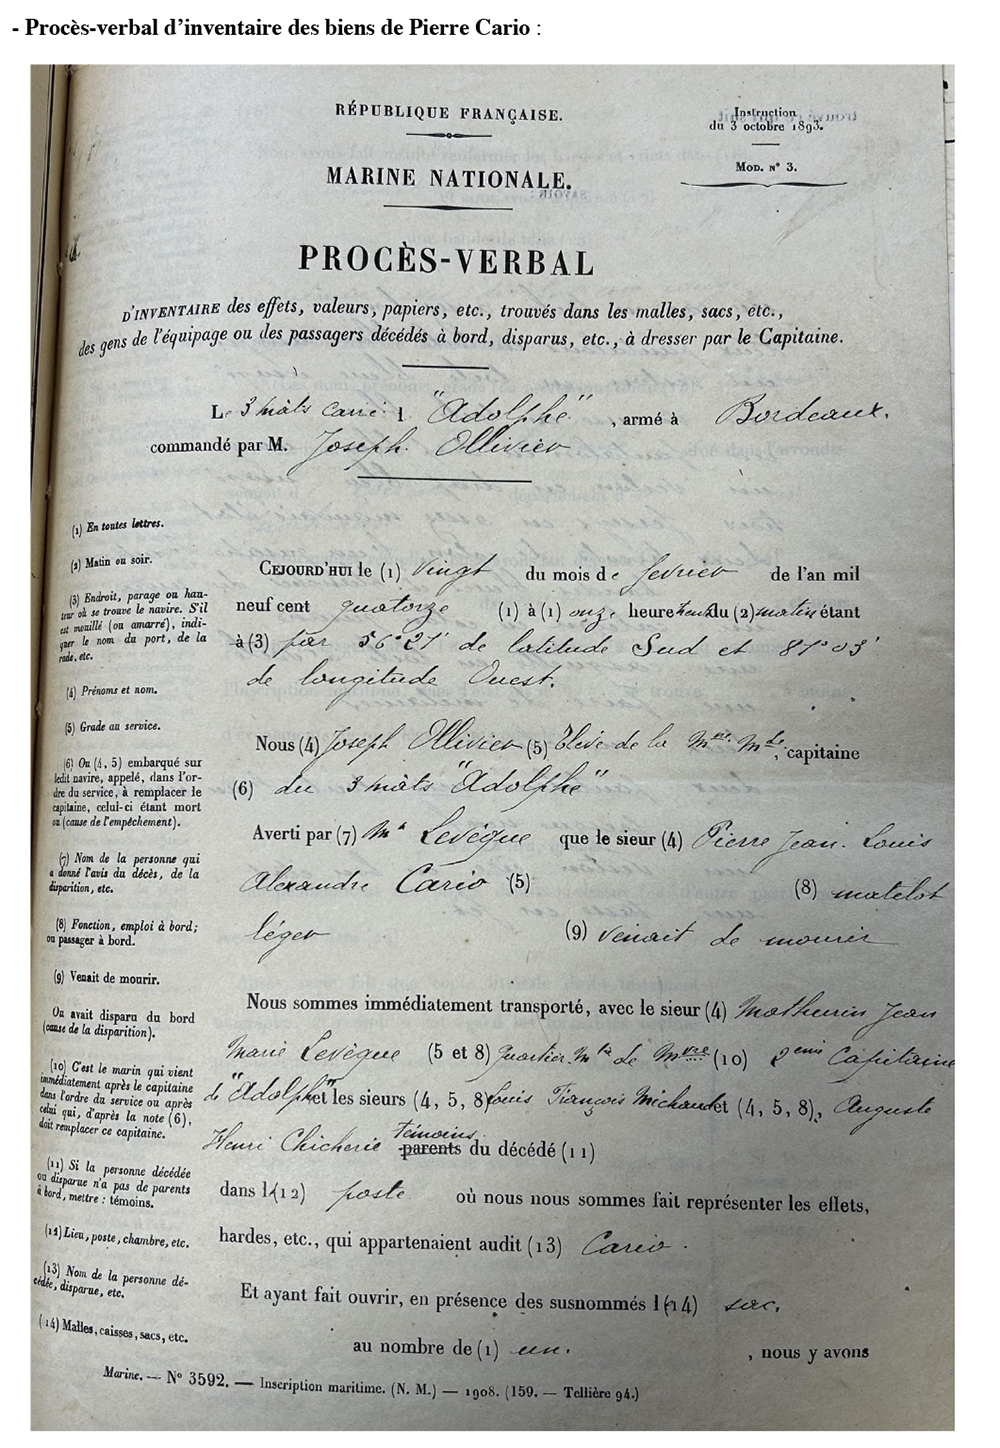 - Procès-verbal d’inventaire des biens de Pierre Cario :
RÉPUBLIQUE FRANÇAISE.
Instruction
du 3 octobre 1893.
MARINE NATIONALE.
Mod. N° 3.
PROCÈS-VERBAL
D'INVENTAIRE des effets, valeurs, papiers, etc., trouvés dans les malles, sacs, etc.,
des gens de l'équipage ou des passagers décédés à bord, disparus, etc., à dresser par le Capitaine.
Le 3 mâts carré "Adolphe", armé à Bordeaux.
commandé par M. Joseph Ollivier
(1) En toutes lettres.
(2) Matin ou soir.
(3) Endroit, parage ou hau-
teur où se trouve le navire. S'il
est mouillé (ou amarré), indi-
quer le nom du port, de la
rade, etc.
(4) Prénoms et nom.
(5) Grade au service.
(6) Ou (4, 5) embarqué sur
ledit navire, appelé, dans l'or-
dre du service, à remplacer le
capitaine, celui-ci étant mort
ou (cause de l'empêchement).
(7) Nom de la personne qui
a donné l'avis du décès, de la
disparition, etc.
(8) Fonction, emploi à bord;
ou passager à bord.
(9) Venait de mourir.
Ou avait disparu du bord
(cause de la disparition).
(10) C'est le marin qui vient
immédiatement après le capitaine
dans l'ordre du service ou après
celui qui, d'après la note (6),
doit remplacer ce capitaine.
(11) Si la personne décédée
ou disparue n'a pas de parents
à bord, mettre : témoins.
(12) Lieu, poste, chambre, etc.
(13) Nom de la personne dé-
cédée, disparue, etc.
(14) Malles, caisses, sacs, etc.
CEJOURD'HUI le (1) vingt du mois de fevrier de l'an mil
neuf cent quatorze (1) à (1) onze heure du (2) matin étant
à (3) par 56° 27' de latitude Sud et 81° 03'
de longitude Ouest.
Nous (4) Joseph Ollivier (5) Elève de la Mne Mde, capitaine
(6) du 3 mâts "Adolphe"
Averti par (7) Mr Levèque que le sieur (4) Pierre Jean. Louis
Alexandre Cario (5) (8) matelot
léger (9) venait de mourir
Nous sommes immédiatement transporté, avec le sieur (4) Mathurin Jean
Marie Levèque (5 et 8) Quartier Mtre de Mvre (10) 2eme Capitaine
de "Adolphe" et les sieurs (4, 5, 8) Louis François Michaud et (4, 5, 8), Auguste
Henri Chicherie témoins parents du décédé (11)
dans l (12) poste où nous nous sommes fait représenter les effets,
hardes, etc., qui appartenaient audit (13) Cario.
Et ayant fait ouvrir, en présence des susnommés l (14) sac.
au nombre de (1) un. , nous y avons
Marine. — N° 3592. — Inscription maritime. (N. M.) — 1908. (159. — Tellière 94.)